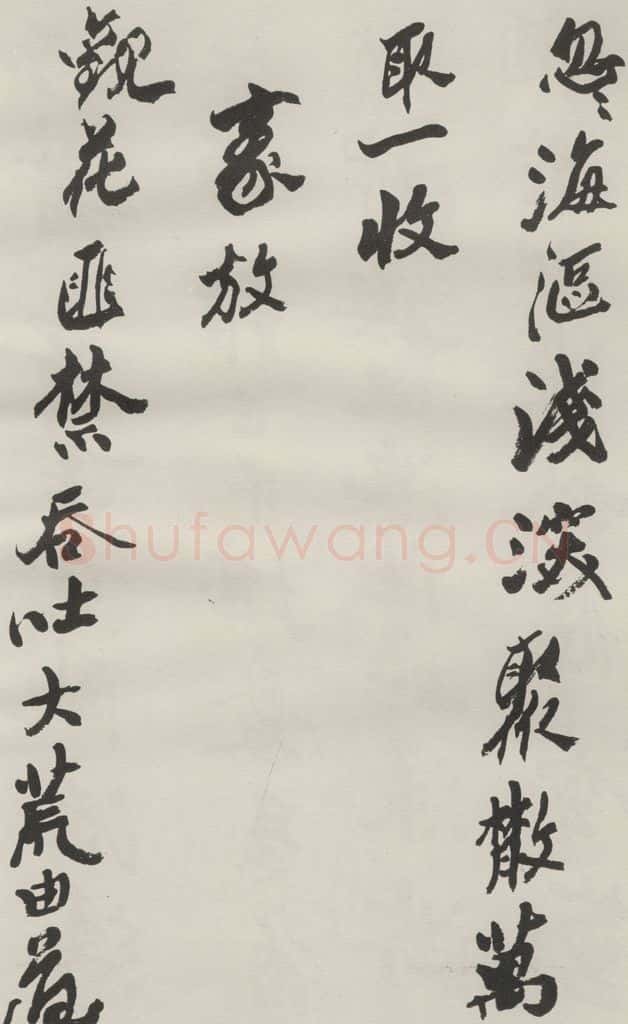 忽々海漚淺深聚散萬
取一收
豪放
觀花匪禁吞吐大荒由道
Shufawang.CN